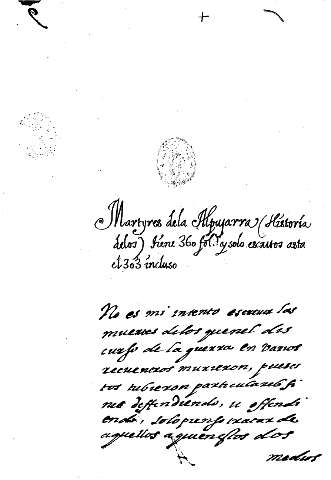 Martyres dela Alpujarra (Historia
delos) tiene 360 fol.s y solo escritos asta
el 303 incluso
No es mi intento escriuir las
muertes delos quenel dis
curso de la guerra en varios
recuentros murieron, puesto
tos tubieron particulares fi
nes deffendiendo, u offendi
endo, solo pienso tratar de
aquellos a quienes los dos
medios